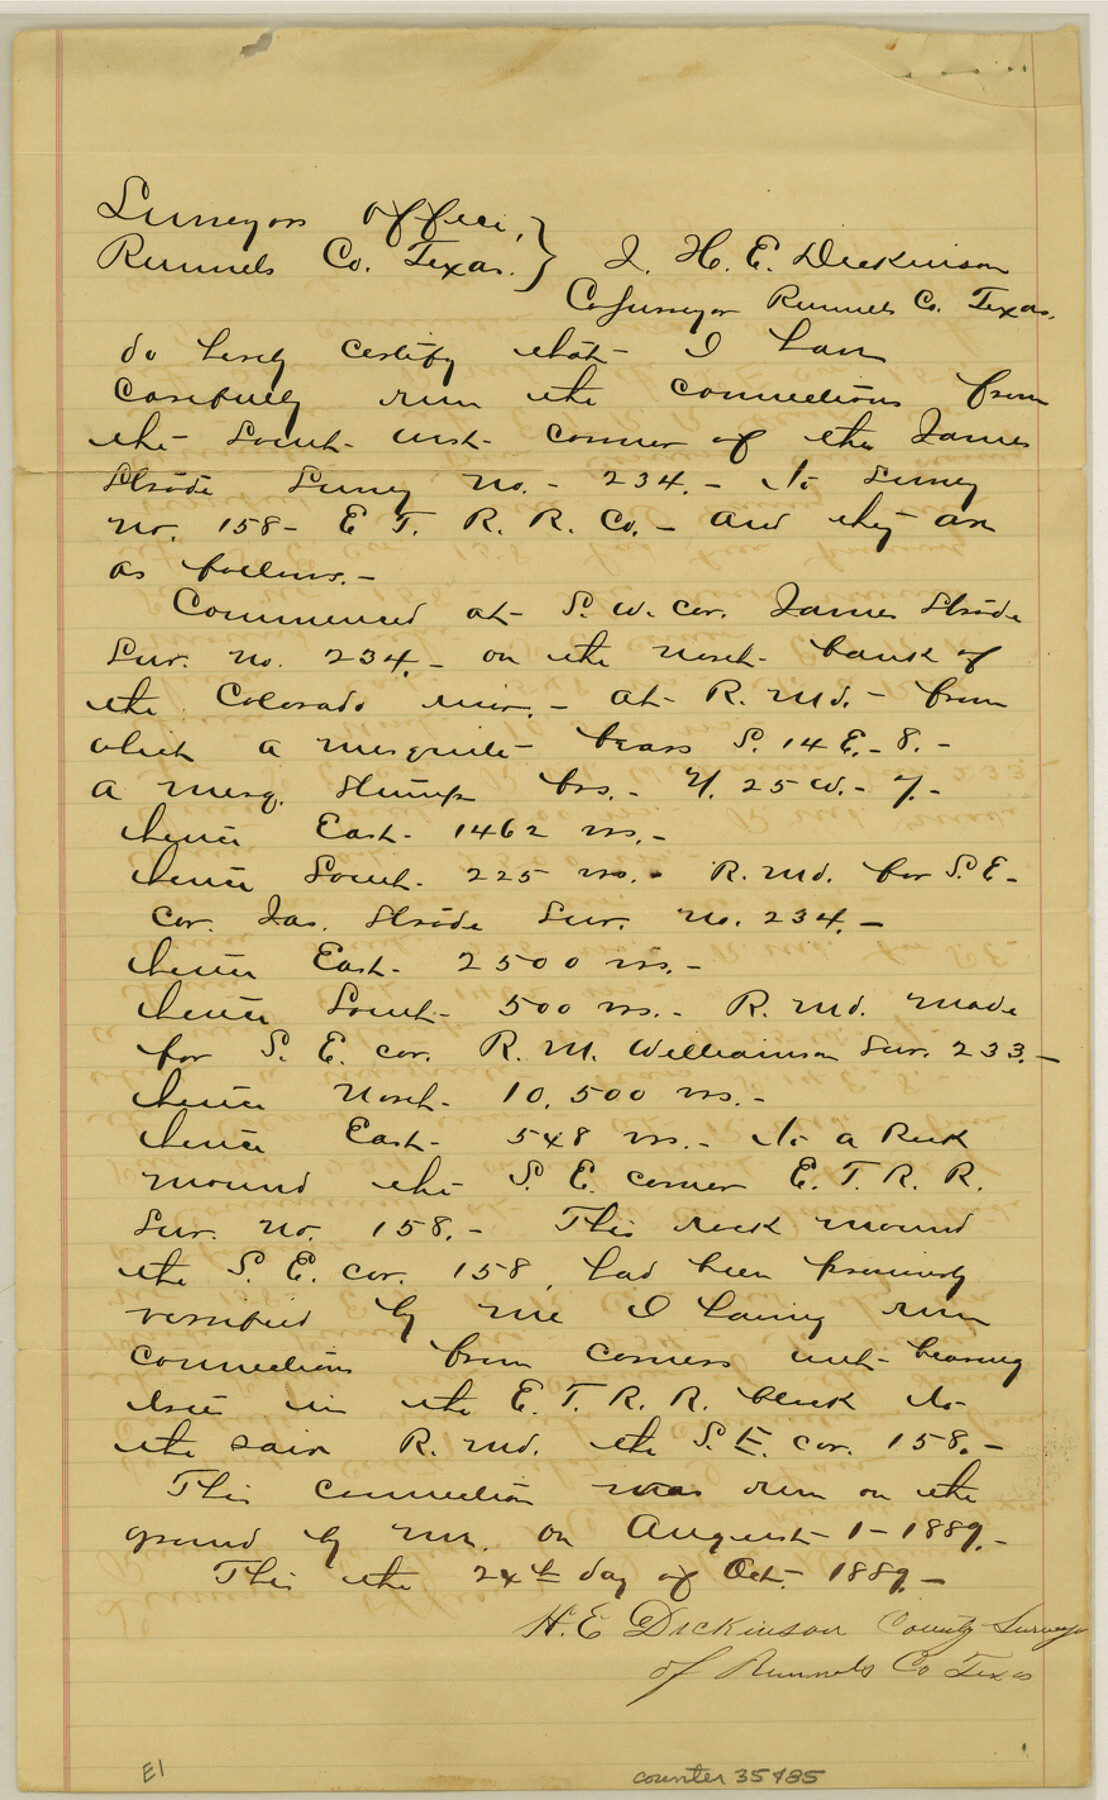 Surveyors office, }
Runnels Co. Texas. } I. H. E. Dickinson
Co Surveyor Runnels Co. Texas.
do hereby certify that I have
carefully run the connections from
the South west corner of the James
Strode Survey No. - 234. - to Survey
No. 158 - E T. R. R. Co. - and they are
as follows. -
Commenced at S. W. cor. James Strode
Sur. No. 234. - on the north bank of
the Colorado river. - at R. Md. - from
which a mesquite bears S. 14 E. - 8. -
a mesq. stump brs. - N. 25 W. - 7. -
thence East - 1462 vrs. -
thence South - 225 vrs. - R. Md. for S. E -
cor. Jas. Strode Sur. No. 234. -
thence East - 2500 vrs. -
thence South - 500 vrs. - R. Md. made
for S. E. cor. R. M. Williamson Sur. 233. -
thence North - 10,500 vrs. -
thence East - 548 vrs. - to a Rock
mound the S. E. corner E. T. R. R.
Sur. No. 158. - This rock mound
the S. E. cor. 158, had been previously
verified by me I having run
connections from corners with bearing
trees in the E. T. R. R. block to
the said R. Md. the S. E. cor. 158. -
This connection was run on the
ground by me. on August 1 - 1889. -
This the 24th day of Oct - 1889. -
H. E Dickinson County Surveyor
of Runnels Co Texas
E1
counter 35485